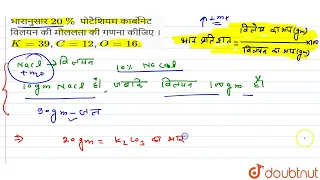 भारानुसार 20 % पोटेशियम कार्बोनेट
विलयन की मोललता की गणना कीजिए ।
K = 39, C = 12, O = 16.
NaCl → विलयन
10% NaCl
10gm NaCl है। जबकि विलयन 100gm है
90gm – जल
⇒ 20gm = K₂CO₃ का भार
भार प्रतिशत = विलेय का भार (gm)
विलयन का भार (gm)
doubtnut